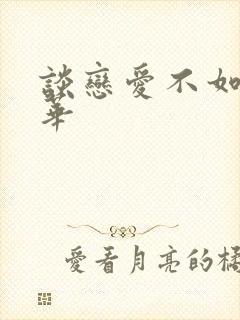 談戀愛不如
華
愛看月亮的橘